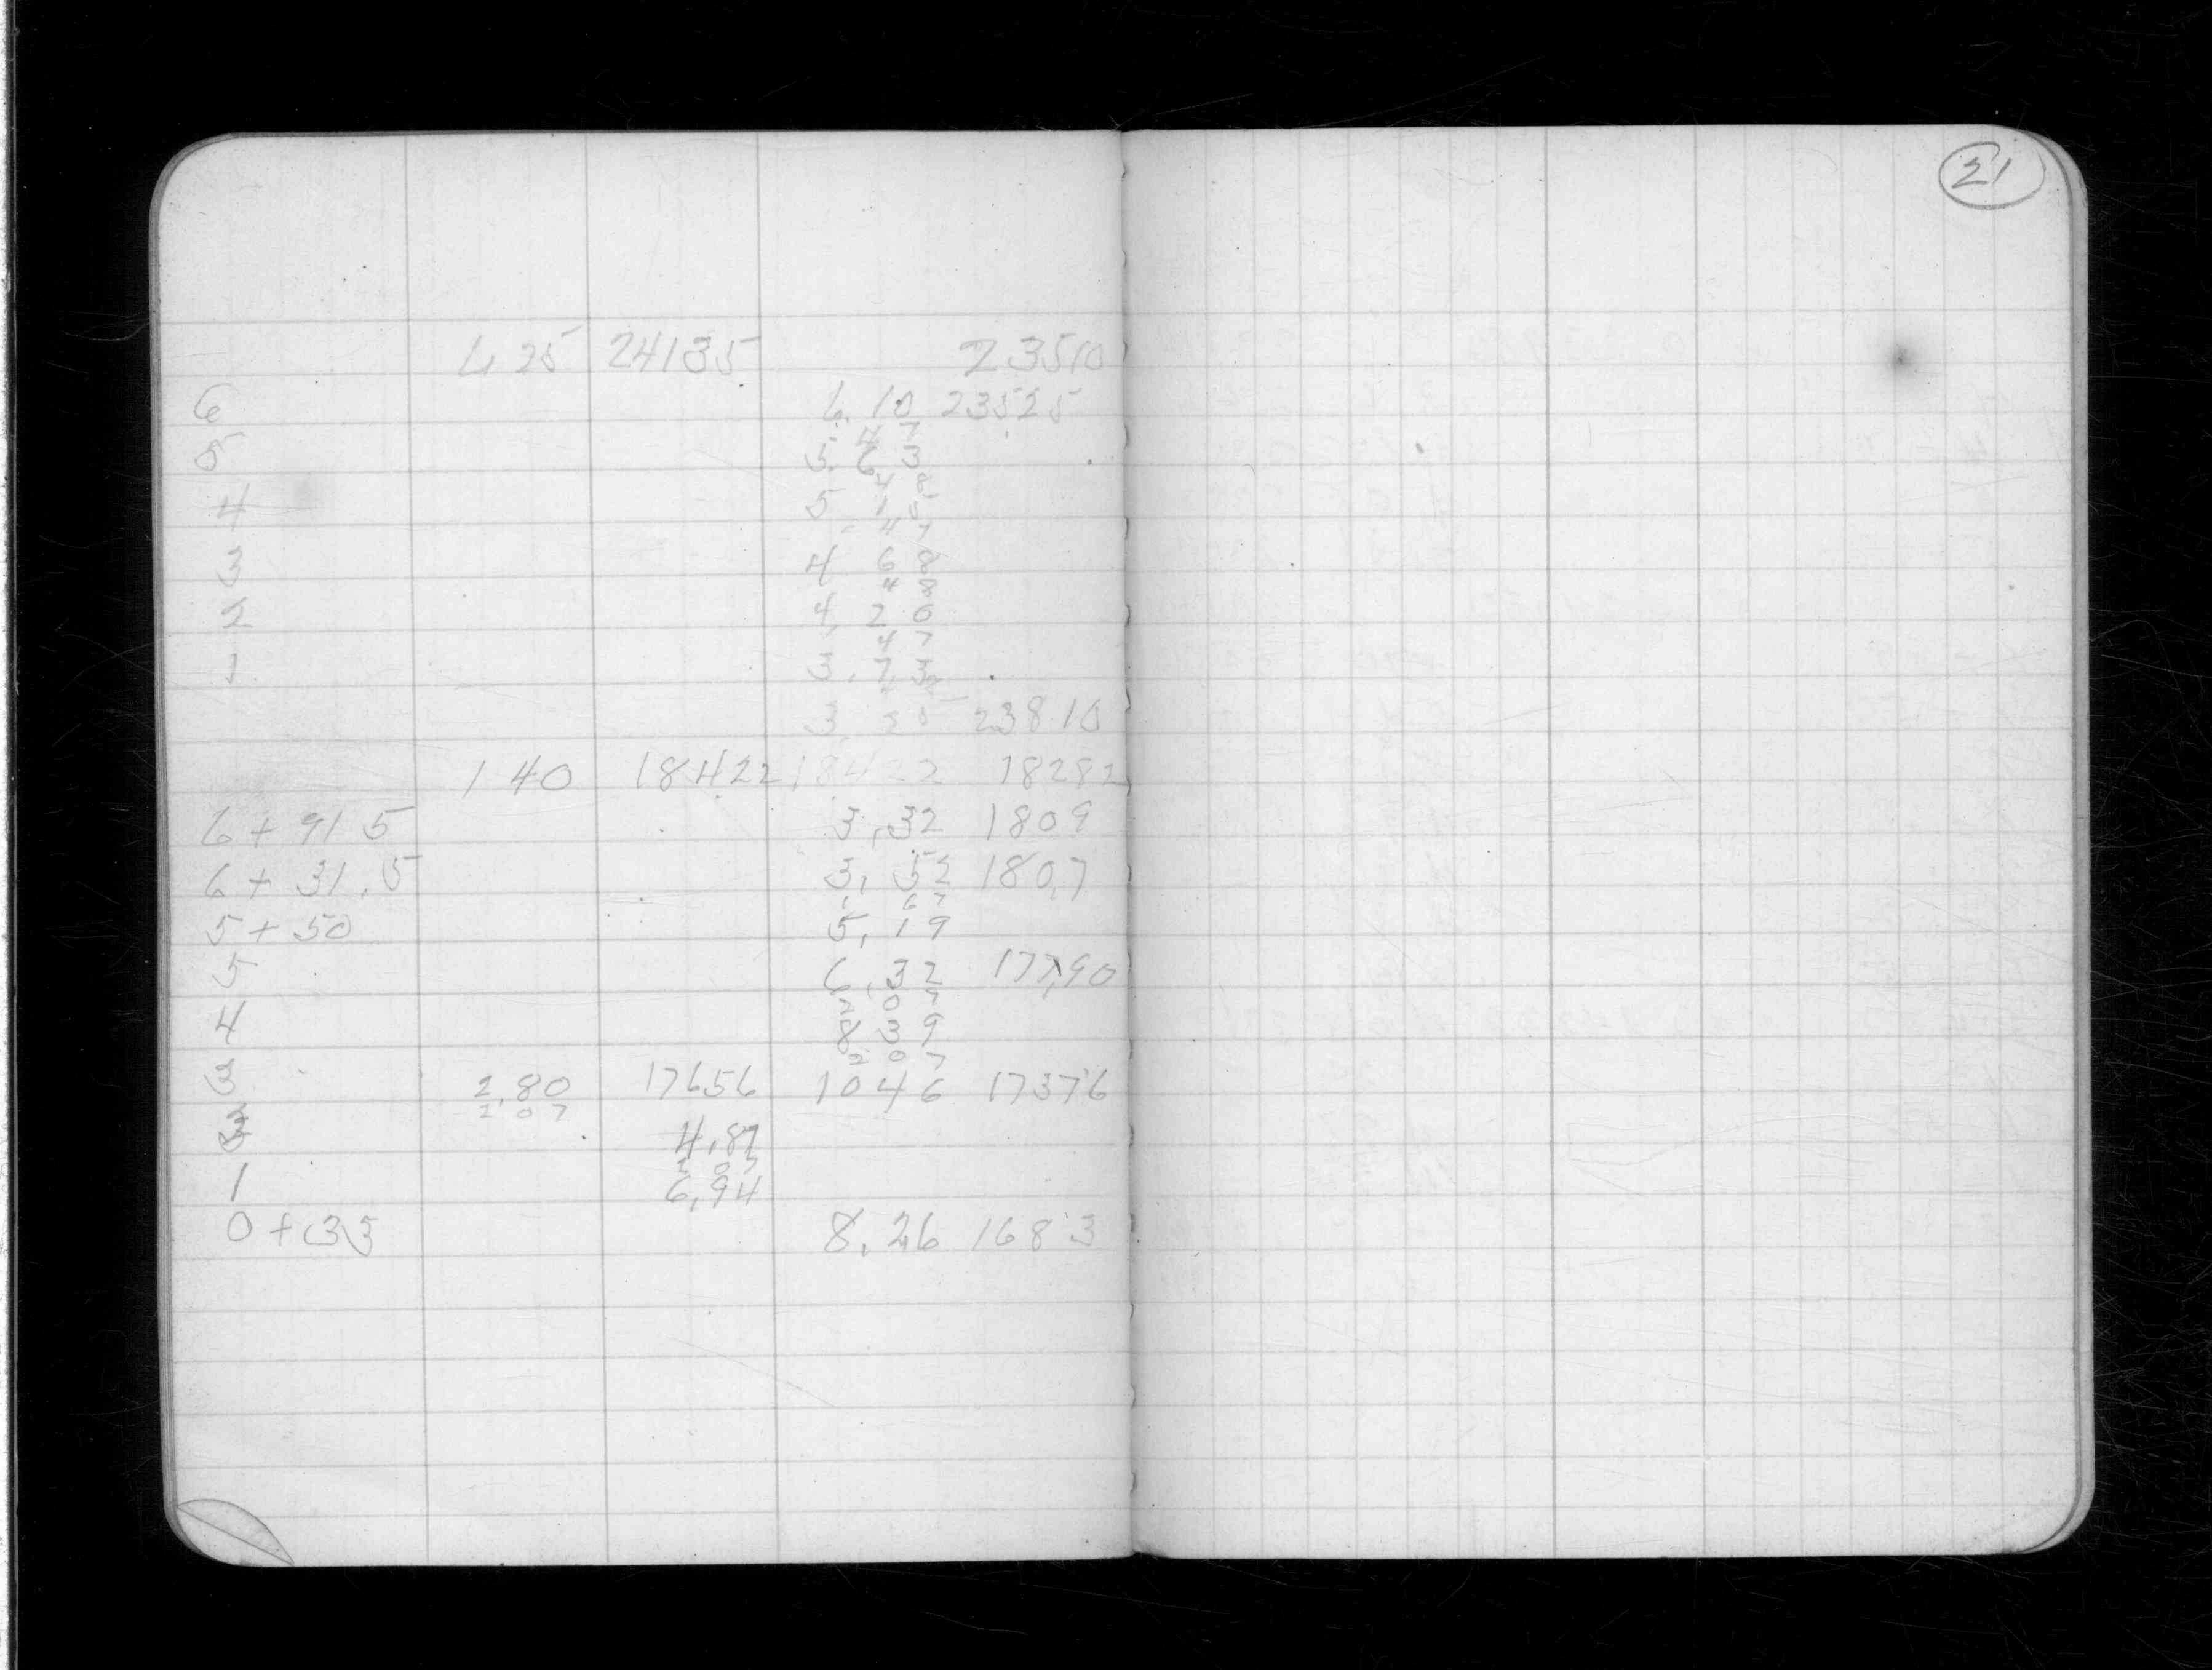 21
6 25 24135 23510
6 6,10 23525
4 7
5 5.63
4 8
4 5 15
4 7
3 4 68
4 8
2 4,20
4 7
1 3.73
3 20 23810
1 40 18422 18422 18282
6 + 91 5 3,32 1809
6 + 31.5 3,52 180,7
1 6 7
5 + 50 5,19
5 6,32 177,90
2 0 7
4 8 39
2 0 7
3 2,80 17656 10 46 17376
2 0 7
2 4,87
2 0 7
1 6,94
0 + 35 8,26 168 3